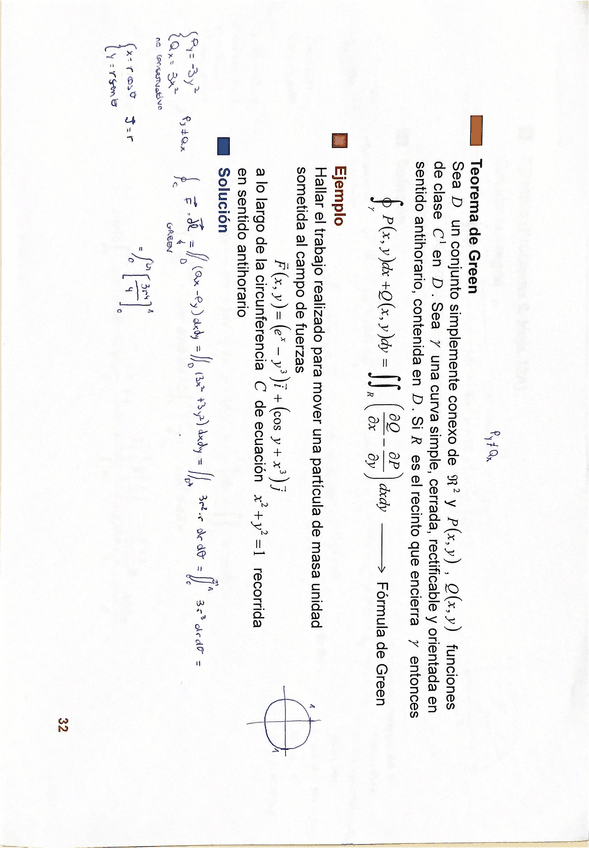 Py ≠ Qx
Teorema de Green
Sea D un conjunto simplemente conexo de ℜ² y P(x, y), Q(x, y) funciones
de clase C¹ en D. Sea γ una curva simple, cerrada, rectificable y orientada en
sentido antihorario, contenida en D. Si R es el recinto que encierra γ entonces
∮_γ P(x, y)dx + Q(x, y)dy = ∬_R (∂Q/∂x − ∂P/∂y) dxdy ⟶ Fórmula de Green
Ejemplo
Hallar el trabajo realizado para mover una partícula de masa unidad
sometida al campo de fuerzas
F⃗(x, y) = (eˣ − y³)i⃗ + (cos y + x³)j⃗
a lo largo de la circunferencia C de ecuación x² + y² = 1 recorrida
en sentido antihorario
1
1
Solución
{Py = -3y²
{Qx = 3x²
Py ≠ Qx
no conservativo
∮_C F⃗ · dl⃗ = ∬_D (Qx - Py) dxdy = ∬_D (3x² + 3y²) dxdy = ∬ 3r² · r dr dθ = ∬ 3r³ dr dθ =
GREEN
{x = r cosθ
{y = r senθ
J = r
= ∫₀ [3r⁴/4]₀¹
32